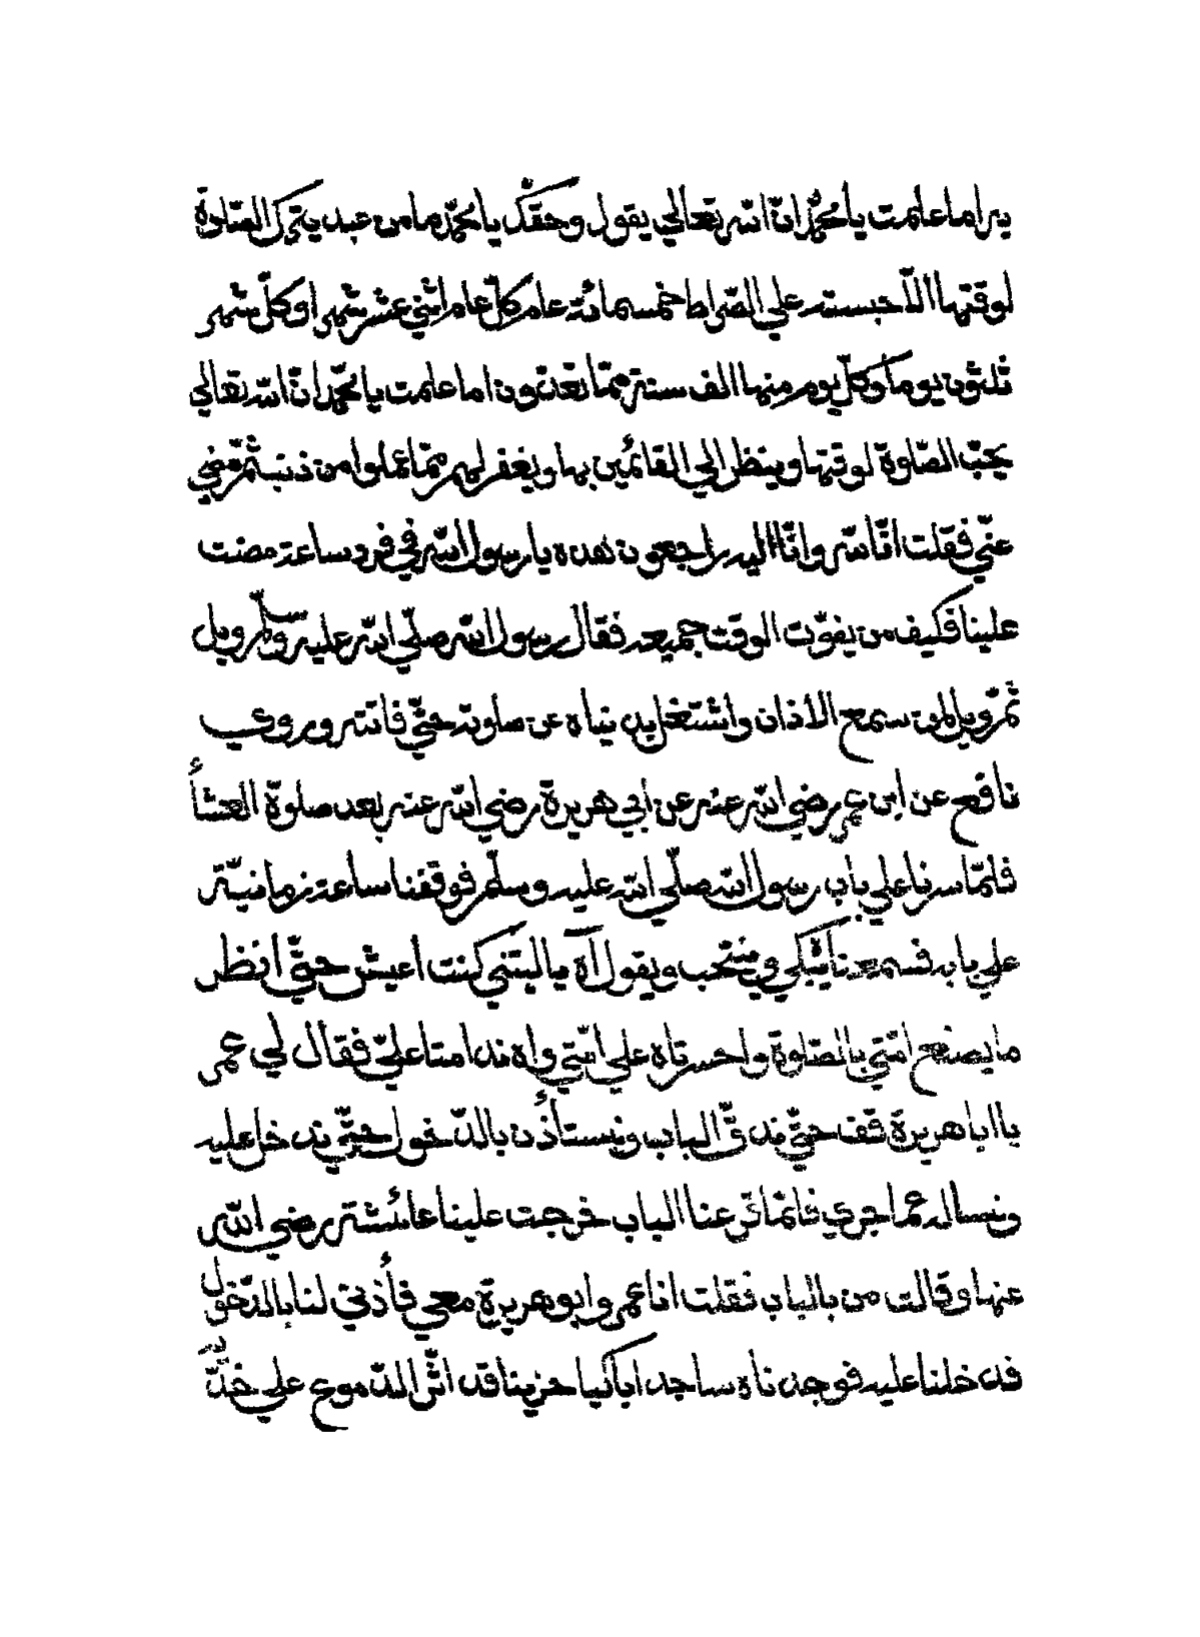 يراما علمت يا محمّد انّ الله تعالي يقول وحقّك يا محمّد ما من عبد يترك الصّلوة
لوقتها الّا حبسته علي الصّراط خمسمائة عام كلّ عام اثني عشر شهرا وكلّ شهر
ثلثون يوما وكلّ يوم منها الف سنة ممّا تعدّون اما علمت يا محمّد انّ الله تعالي
يحبّ الصّلوة لوقتها وينظر الي القائمين بها ويغفر لهم ممّا عملوا من ذنب ثمّ مضي
عنّي فقلت انّا لله وانّا اليه راجعون هذه يا رسول الله في فرد ساعة مضت
علينا فكيف من يفوّت الوقت جميعه فقال رسول الله صلّي الله عليه وسلّم ويل
ثمّ ويل لمن سمع الاذان واشتغل بدنياه عن صلوته حتّي فاتته وروي
نافع عن ابن عمر رضي الله عنه عن ابي هريرة رضي الله عنه بعد صلوة العشأ
فلمّا سرنا علي باب رسول الله صلّي الله عليه وسلّم فوقفنا ساعة زمانيّة
علي بابه فسمعناه يبكي وينتحب ويقول آه يا ليتني كنت اعيش حتّي انظر
ما يصنع امّتي بالصّلوة واحسرتاه علي امّتي واه ندامتا عليّ فقال لي عمر
يا ابا هريرة قف حتّي ندقّ الباب ونستأذن بالدّخول حتّي ندخل عليه
ونساله عما جري فلمّا قرعنا الباب خرجت علينا عائشة رضي الله
عنها وقالت من بالباب فقلت انا عمر وابو هريرة معي فأذني لنا بالدّخول
فدخلنا عليه فوجدناه ساجدا باكيا حزينا قد اثّر الدّموع علي خدّيه